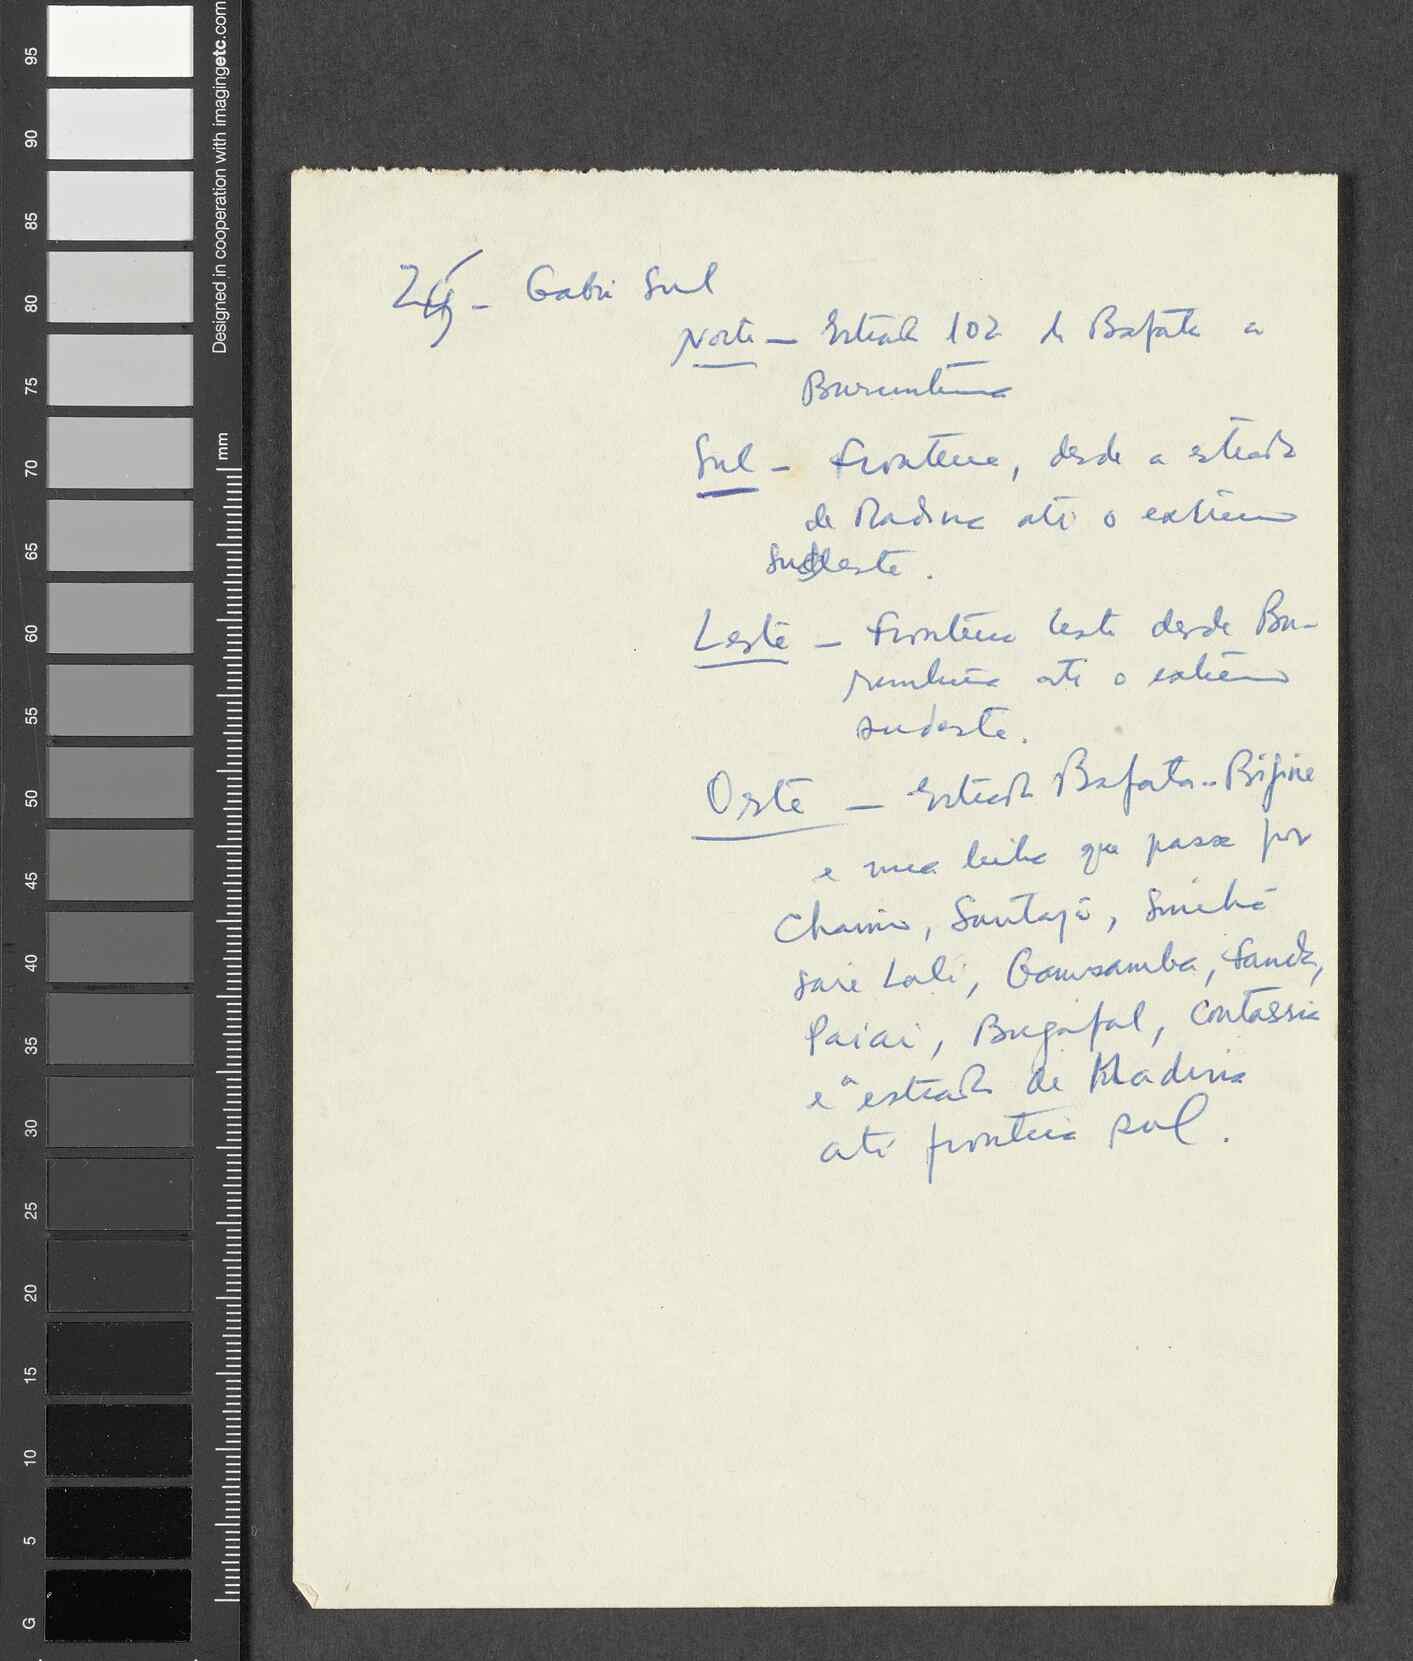 95
90
85
80
75
70
65
60
55
50
45
40
35
30
25
20
15
10
5
G
Designed in cooperation with imagingetc.com
mm
Gabu Sul
Norte — Estrada 102 de Bafata a
Buruntuma
Sul — fronteira, desde a estrada
de Madina até o extremo
sudeste.
Leste — fronteira leste desde Bu-
runtuma até o extremo
sudeste.
Oeste — Estrada Bafata-Bijine
e uma linha que passa por
Chaimo, Santajā, Sinchā
Sare Lali, Gamsamba, fanda,
Paiai, Bugafal, Contassia
e a estrada de Madina
até fronteira sul.